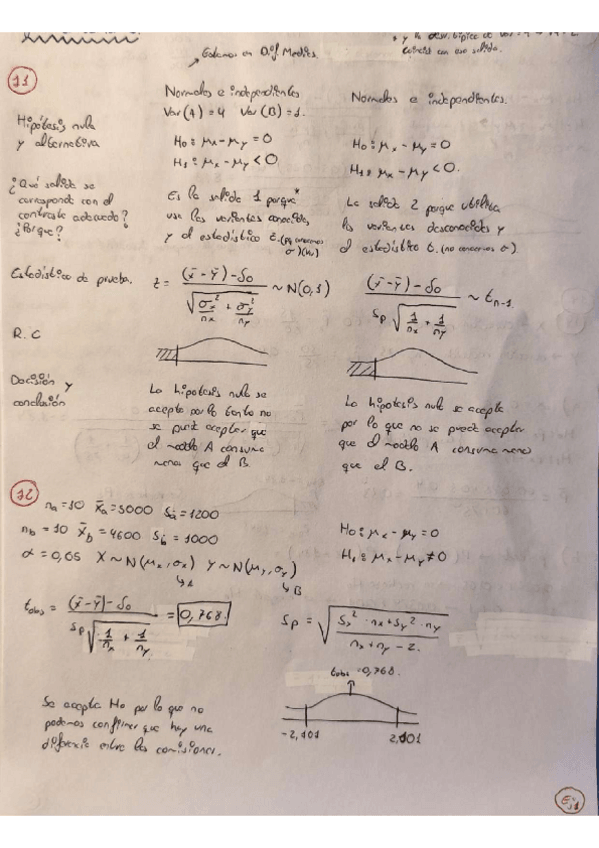 Estamos en Dif Medias.
coincid con esa salida.
11
Normales e independientes
Var(A) = 4 Var(B) = 1.
Normales e independientes.
Hipótesis nula
y alternativa
H0: μx - μy = 0
H1: μx - μy < 0.
H0: μx - μy = 0
H1: μx - μy < 0.
¿Qué salida se
corresponde con el
contraste adecuado?
¿Por qué?
Es la salida 1 porque*
usa las varientes conocidas
y el estadístico z. (pq conocemos
σ)
La salida 2 porque utiliza
las varientes desconocidas y
el estadístico t. (no conocemos σ)
Estadístico de prueba.
z = (x̄ - ȳ) - δ0 / √(σx²/nx + σy²/ny) ~ N(0,1)
(x̄ - ȳ) - δ0 / Sp √(1/nx + 1/ny) ~ tn-1.
R.C
Decisión y
conclusión
La hipotesis nula se
acepta por lo tanto no
se puede aceptar que
el modelo A consume
menos que el B.
La hipotesis nula se acepta
por lo que no se puede aceptar
que el modelo A consume menos
que el B.
12
na = 10 x̄a = 5000 Sa = 1200
nb = 10 x̄b = 4600 Sb = 1000
α = 0,05 X ~ N(μx, σx) Y ~ N(μy, σy)
↳A ↳B
H0: μx - μy = 0
H1: μx - μy ≠ 0
tobs = (x̄ - ȳ) - δ0 / Sp √(1/nx + 1/ny) = 0,768.
Sp = √(Sx² · nx + Sy² · ny / nx + ny - 2.)
tobs = 0,768.
-2,101 2,101
Se acepta H0 por lo que no
podemos confirmar que hay una
diferencia entre las comisiones.